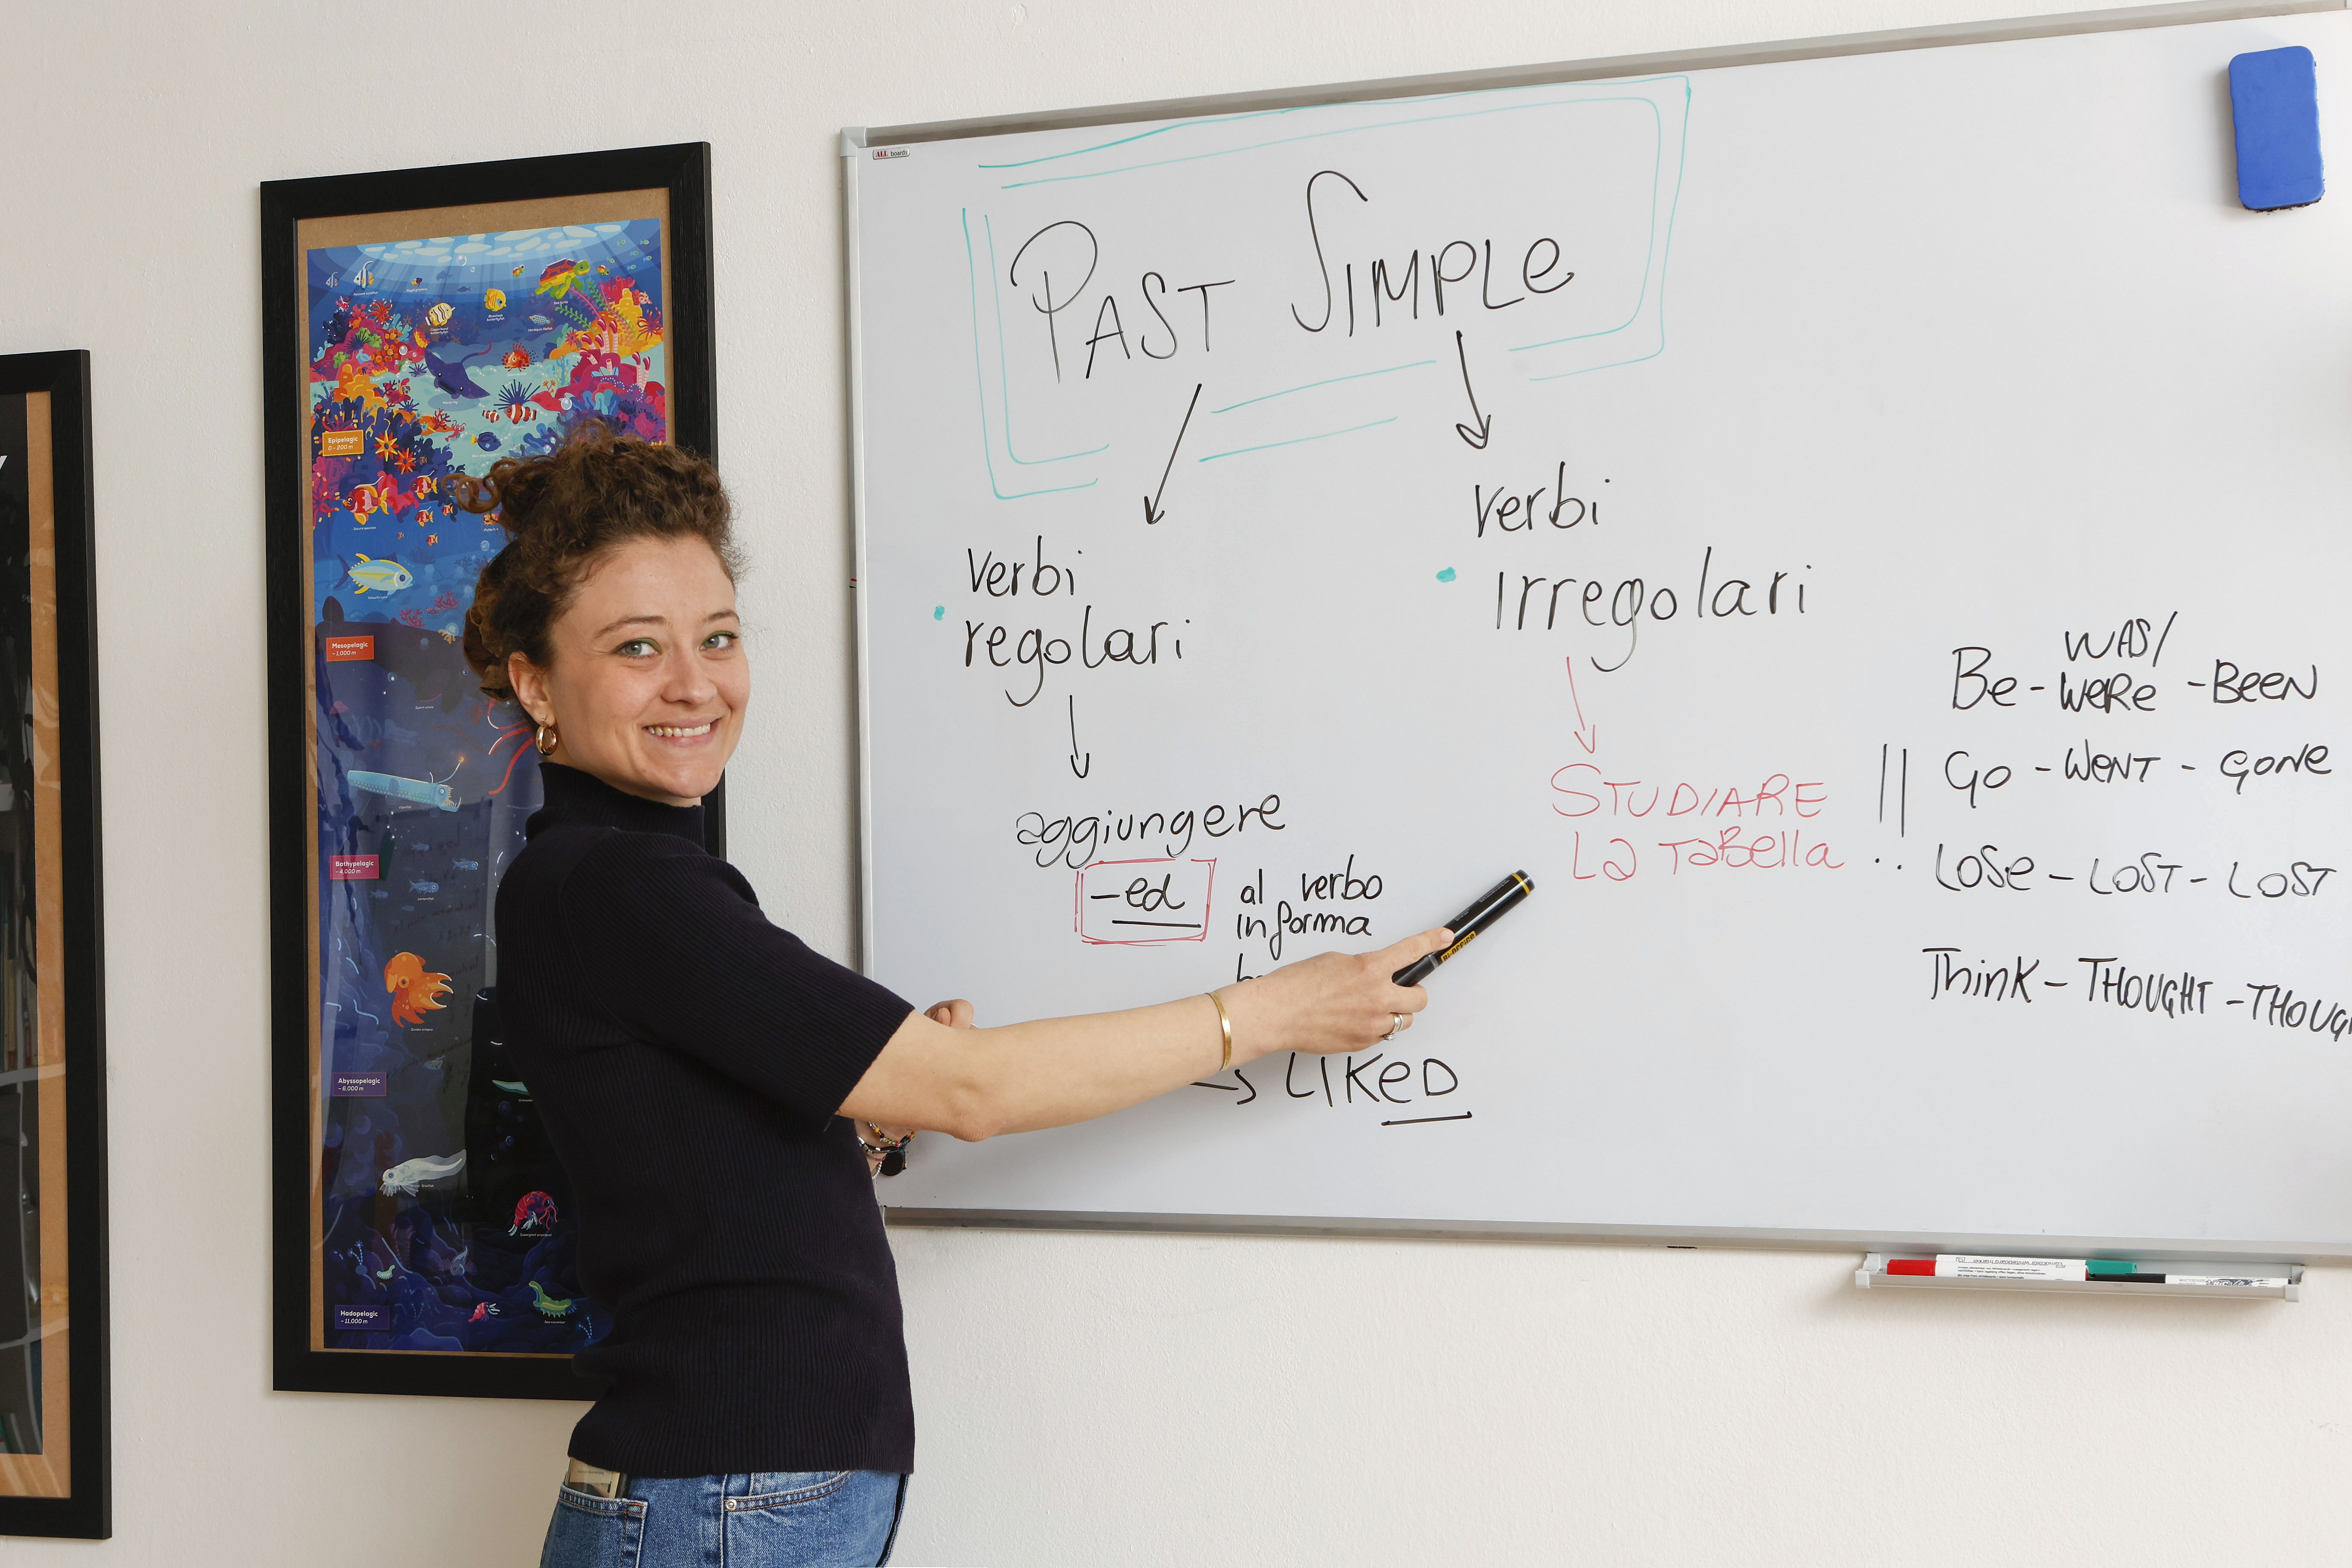 ALL boards
PAST SIMPLE
verbi
regolari
aggiungere
-ed
al verbo
in forma
→ LIKED
verbi
irregolari
STUDIARE
La TaBella
!!
Be - WAS/
WeRe - BEEN
GO - WENT - GONE
LOSE - LOST - LOST
Think - THOUGHT - THOUGH
BI-OFFICE
Epipelagic
0 - 200 m
Mesopelagic
~ 1,000 m
Bathypelagic
~ 4,000 m
Abyssopelagic
~ 6,000 m
Hadopelagic
~ 11,000 m